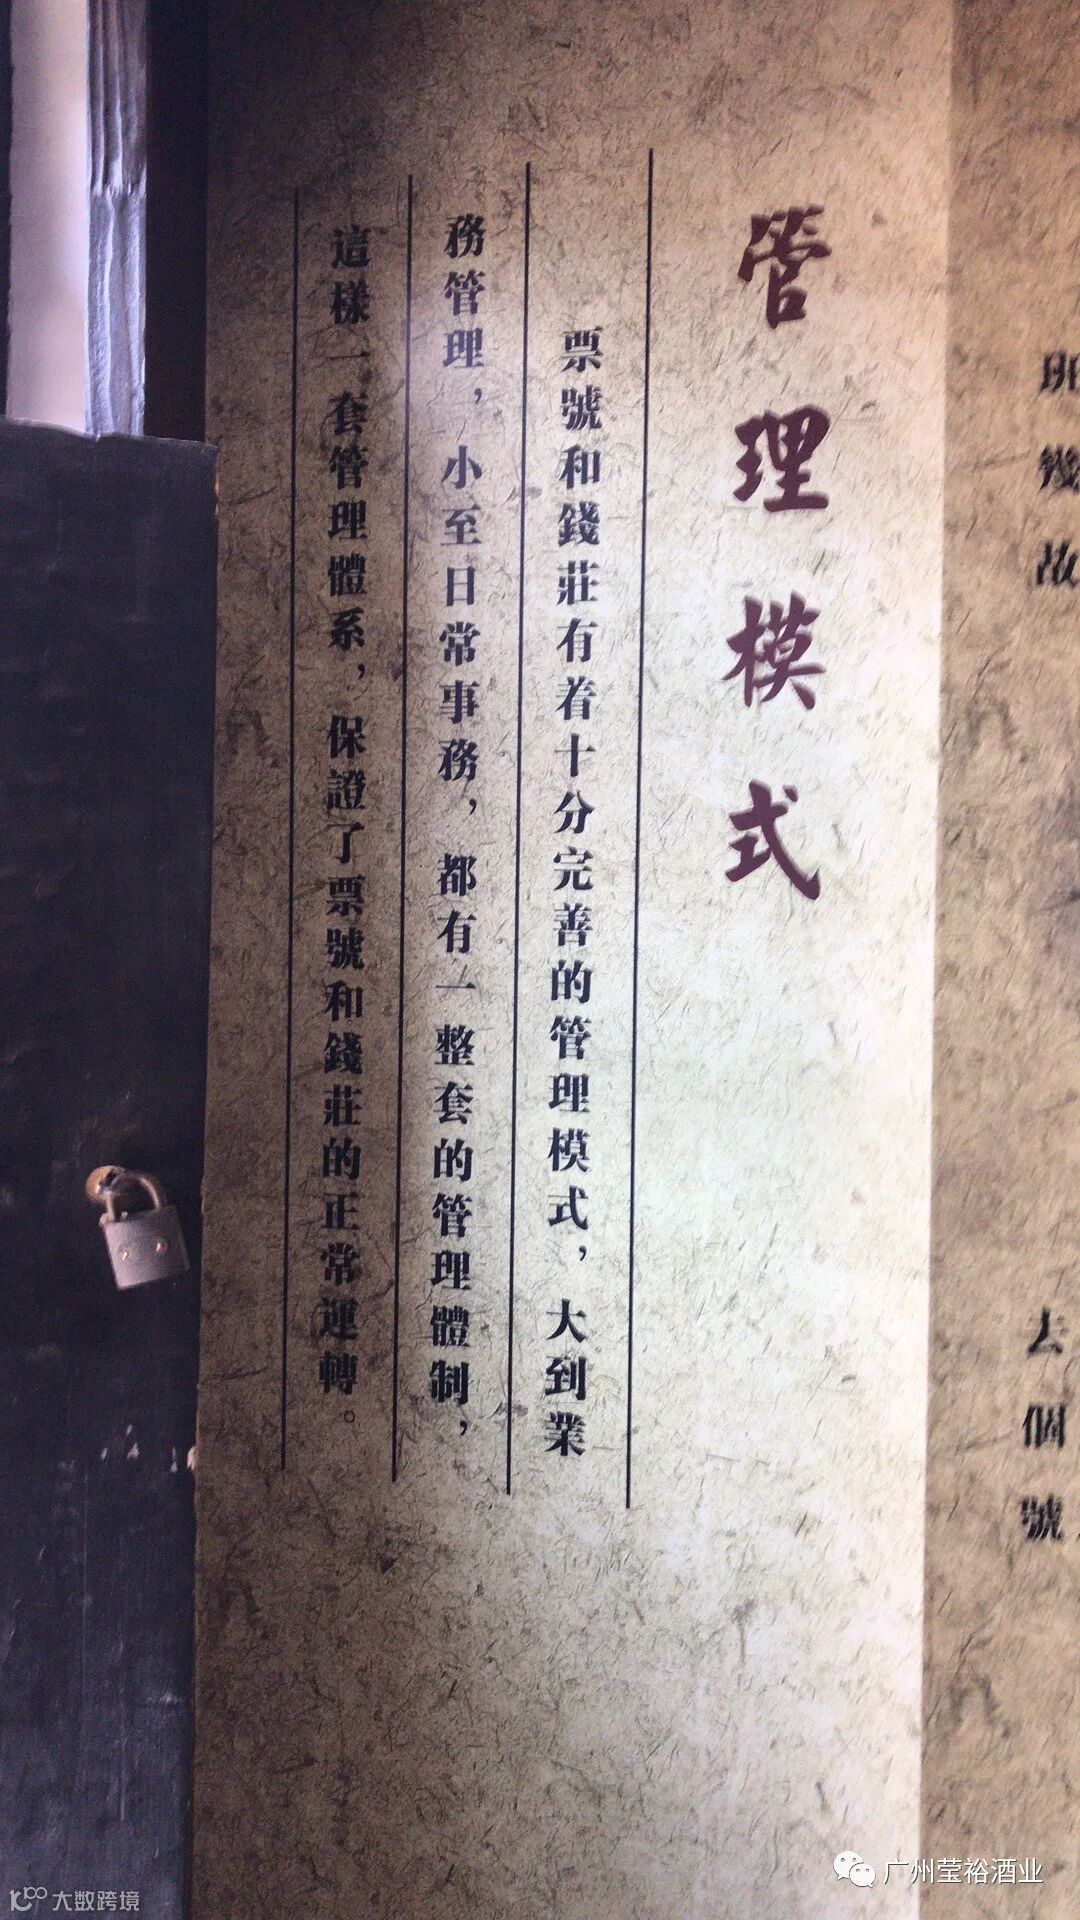 管理模式
票號和錢莊有着十分完善的管理模式，大到業
務管理，小至日常事務，都有一整套的管理體制，
這樣一套管理體系，保證了票號和錢莊的正常運轉。
班幾故
去個號
广州莹裕酒业
大数跨境